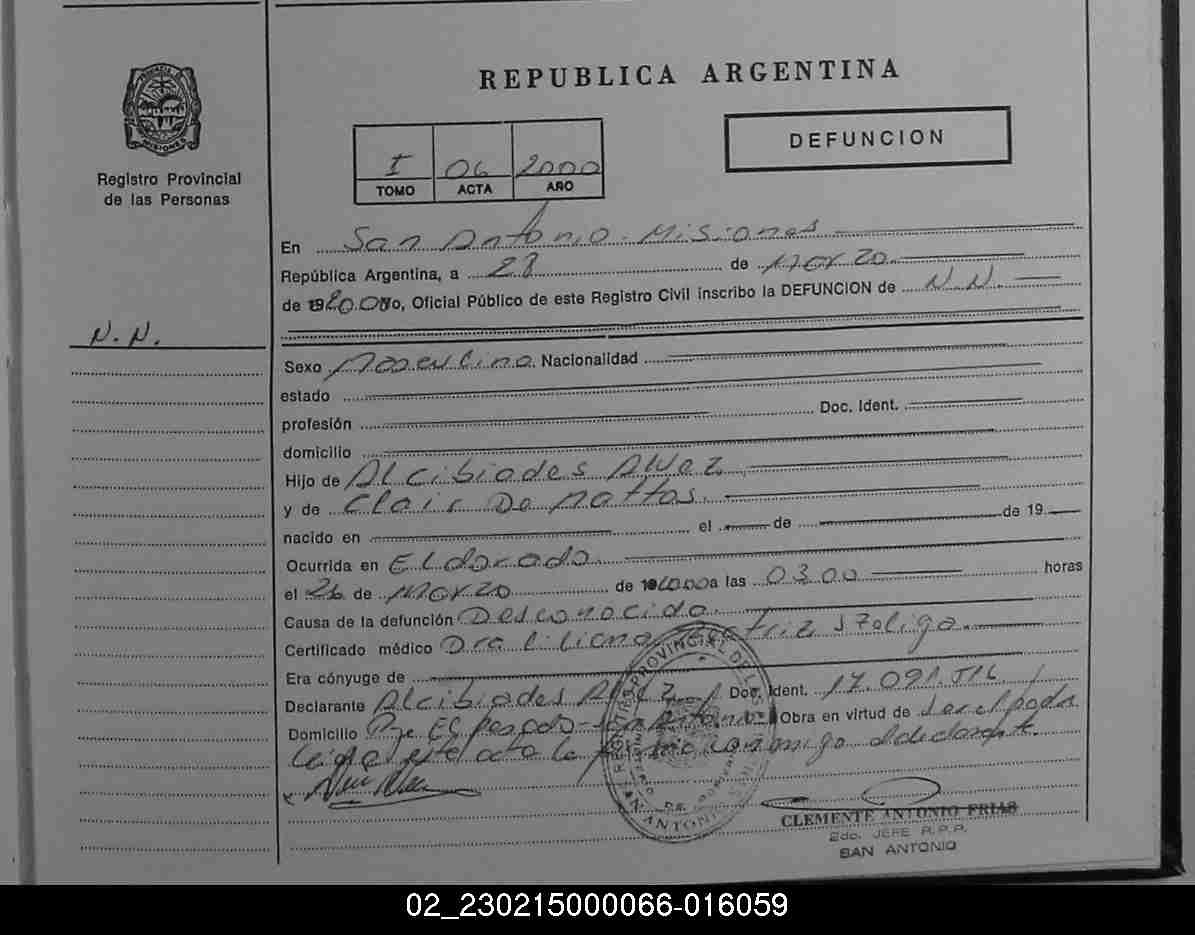 REPUBLICA ARGENTINA
DEFUNCION
PROVINCIA DE
MISIONES
Registro Provincial
de las Personas
I 06 2000
TOMO ACTA AÑO
En San Antonio - Misiones
República Argentina, a 28 de Marzo
de 2000 yo, Oficial Público de este Registro Civil inscribo la DEFUNCION de N.N.
N.N.
Sexo Masculino Nacionalidad
estado
profesión Doc. Ident.
domicilio
Hijo de Alcibiades Alvez
y de Clair De Mattos.
nacido en el de de 19
Ocurrida en Eldorado.
el 26 de Marzo de 2000 a las 03 00 horas
Causa de la defunción Desconocida.
Certificado médico Dra Liliana Beatriz Szeliga.
Era cónyuge de
Declarante Alcibiades Alvez Doc. Ident. 17.091.516
Domicilio Pje El Pesado - San Antonio Obra en virtud de ser el padre
Leída el acta la firma conmigo el declarante.
CLEMENTE ANTONIO FRIAS
2do. JEFE R.P.P.
SAN ANTONIO
02_230215000066-016059